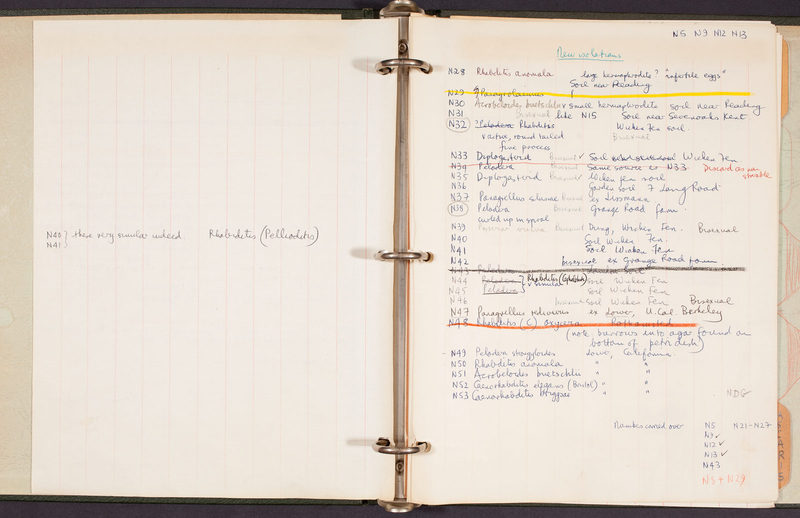 N40 } these very similar indeed Rhabditis (Pelliodetis)
N41
N5 N9 N12 N13
New isolations
N28 Rhabditis anomala large hermaphrodite? "infertile eggs"
Soil near Reading
N29 ? Panagrolaimus
N30 Acrobeloides buetschlii v small hermaphrodite soil near Reading
N31 Bisexual like N15 Soil near Sevenoaks Kent
N32 ? Pelodera Rhabditis Wicken Fen soil.
v active, round tailed Bisexual
fine process
N33 Diplogasterid Bisexual Soil Wicken Fen
N34 Pelodera Bisexual Same source as N33 Discard as non
N35 Diplogasterid Bisexual Wicken fen soil
N36 Garden soil 7 Long Road
N37 Panagrellus Bisexual ex Lissmann
N38 Pelodera Bisexual Grange Road farm.
curled up in spiral
N39 Bisexual Dung, Wicken Fen. Bisexual
N40 Soil Wicken Fen.
N41 Soil Wicken Fen
N42 bisexual ex Grange Road farm.
N43 Pelodera soil
N44 Pelodera } Rhabditis Soil Wicken Fen
N45 Pelodera v similar Soil Wicken Fen
N46 Bisexual Soil Wicken Fen Bisexual
N47 Panagrellus redivivus ex Lower, U. Cal. Berkeley
N48 Rhabditis (C) oxycera
(note burrows into agar found on
bottom of petri dish)
N49 Pelodera strongyloides Lower, California.
N50 Rhabditis anomala " "
N51 Acrobeloides buetschlii " "
N52 Caenorhabditis elegans (Bristol) " "
N53 Caenorhabditis briggsae " " NDG
Number carried over N5 N21-N27
N9 ✓
N12 ✓
N13 ✓
N43
N5 + N29